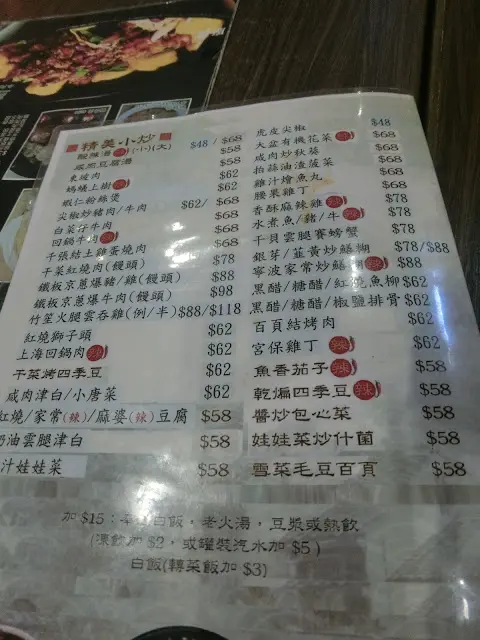 精美小炒
酸辣湯(辣)(小)(大) $48 / $68
咸煎豆腐湯 $58
東坡肉 $68
螞蟻上樹(辣) $58
蝦仁粉絲煲 $68
尖椒炒豬肉/牛肉 $62/ $68
白菜仔牛肉 $68
回鍋牛肉(辣) $68
干張結土雞蛋燒肉 $68
干菜紅燒肉(饅頭) $78
鐵板京蔥爆豬/雞(饅頭) $88
鐵板京蔥爆牛肉(饅頭) $98
竹笙火腿雲吞雞(例/半) $88/$118
紅燒獅子頭 $62
上海回鍋肉(辣) $62
干菜烤四季豆 $62
咸肉津白/小唐菜 $62
紅燒/家常(辣)/麻婆(辣)豆腐 $58
奶油雲腿津白 $58
汁娃娃菜 $58
虎皮尖椒 $48
大盆有機花菜(辣) $68
咸肉炒秋葵 $68
拍蒜油渣菠菜 $68
雞汁燴魚丸 $68
腰果雞丁 $68
香酥麻辣雞(辣) $78
水煮魚/豬/牛(辣) $78
干貝雲腿賽螃蟹 $78
銀芽/韮黃炒鱔糊 $78/$88
寧波家常炒鱔糊(辣) $88
黑醋/糖醋/紅燒魚柳 $62
黑醋/糖醋/椒鹽排骨 $62
百頁結烤肉 $62
宮保雞丁(辣) $62
魚香茄子(辣) $58
乾煸四季豆(辣) $58
醬炒包心菜 $58
娃娃菜炒什菌 $58
雪菜毛豆百頁 $58
加 $15：白飯，老火湯，豆漿或熱飲
(凍飲加 $2，或罐裝汽水加 $5)
白飯(轉菜飯加 $3)